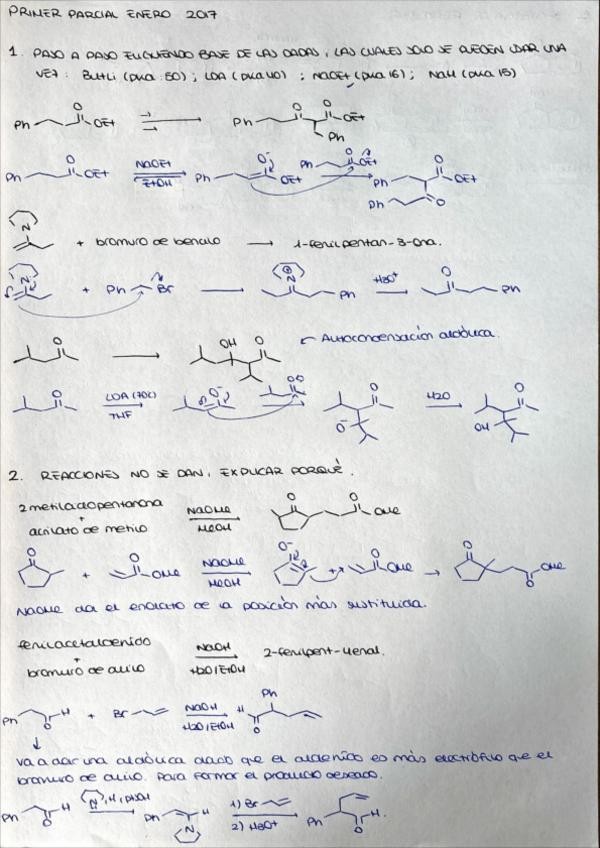 PRIMER PARCIAL ENERO 2017
1. PASO A PASO ELIGIENDO BASE DE LAS DADAS, LAS CUALES SOLO SE PUEDEN USAR UNA
VEZ: ButLi (pka 50); LDA (pka 40); NaOEt (pka 16); NaH (pka 15)
Ph O OEt → → Ph O O OEt Ph
Ph O OEt NaOEt EtOH Ph O⁻ OEt Ph O OEt Ph O OEt Ph O
N + bromuro de bencilo → 1-fenilpentan-3-ona.
N + Ph Br → N Ph H3O⁺ O Ph
O → OH O Autocondensación aldólica.
O LDA (-78ºC) THF O⁻ O O O⁻ H2O O OH
2. REACCIONES NO SE DAN, EXPLICAR PORQUÉ.
2metilciclopentanona
+
acrilato de metilo NaOMe MeOH O O OMe
O + O OMe NaOMe MeOH O⁻ + O OMe → O O OMe
NaOMe da el enolato de la posición más sustituida.
fenilacetaldehído
+
bromuro de alilo NaOH H2O/EtOH 2-fenilpent-4enal.
Ph H O + Br NaOH H2O/EtOH H O Ph
Va a dar una aldólica dado que el aldehído es más electrófilo que el
bromuro de alilo. Para formar el producto deseado.
Ph H O N, H, pTsOH Ph H N 1) Br 2) H3O⁺ Ph O H.